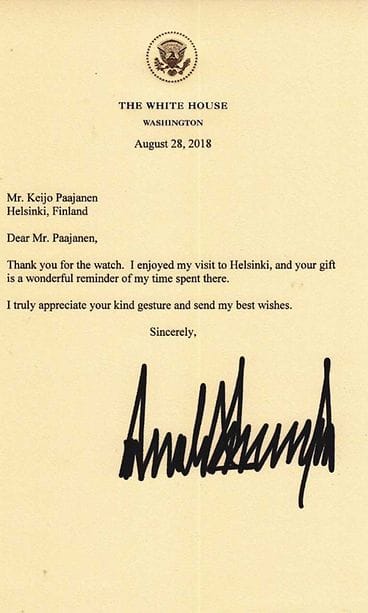 THE WHITE HOUSE
WASHINGTON
August 28, 2018
Mr. Keijo Paajanen
Helsinki, Finland
Dear Mr. Paajanen,
Thank you for the watch. I enjoyed my visit to Helsinki, and your gift
is a wonderful reminder of my time spent there.
I truly appreciate your kind gesture and send my best wishes.
Sincerely,